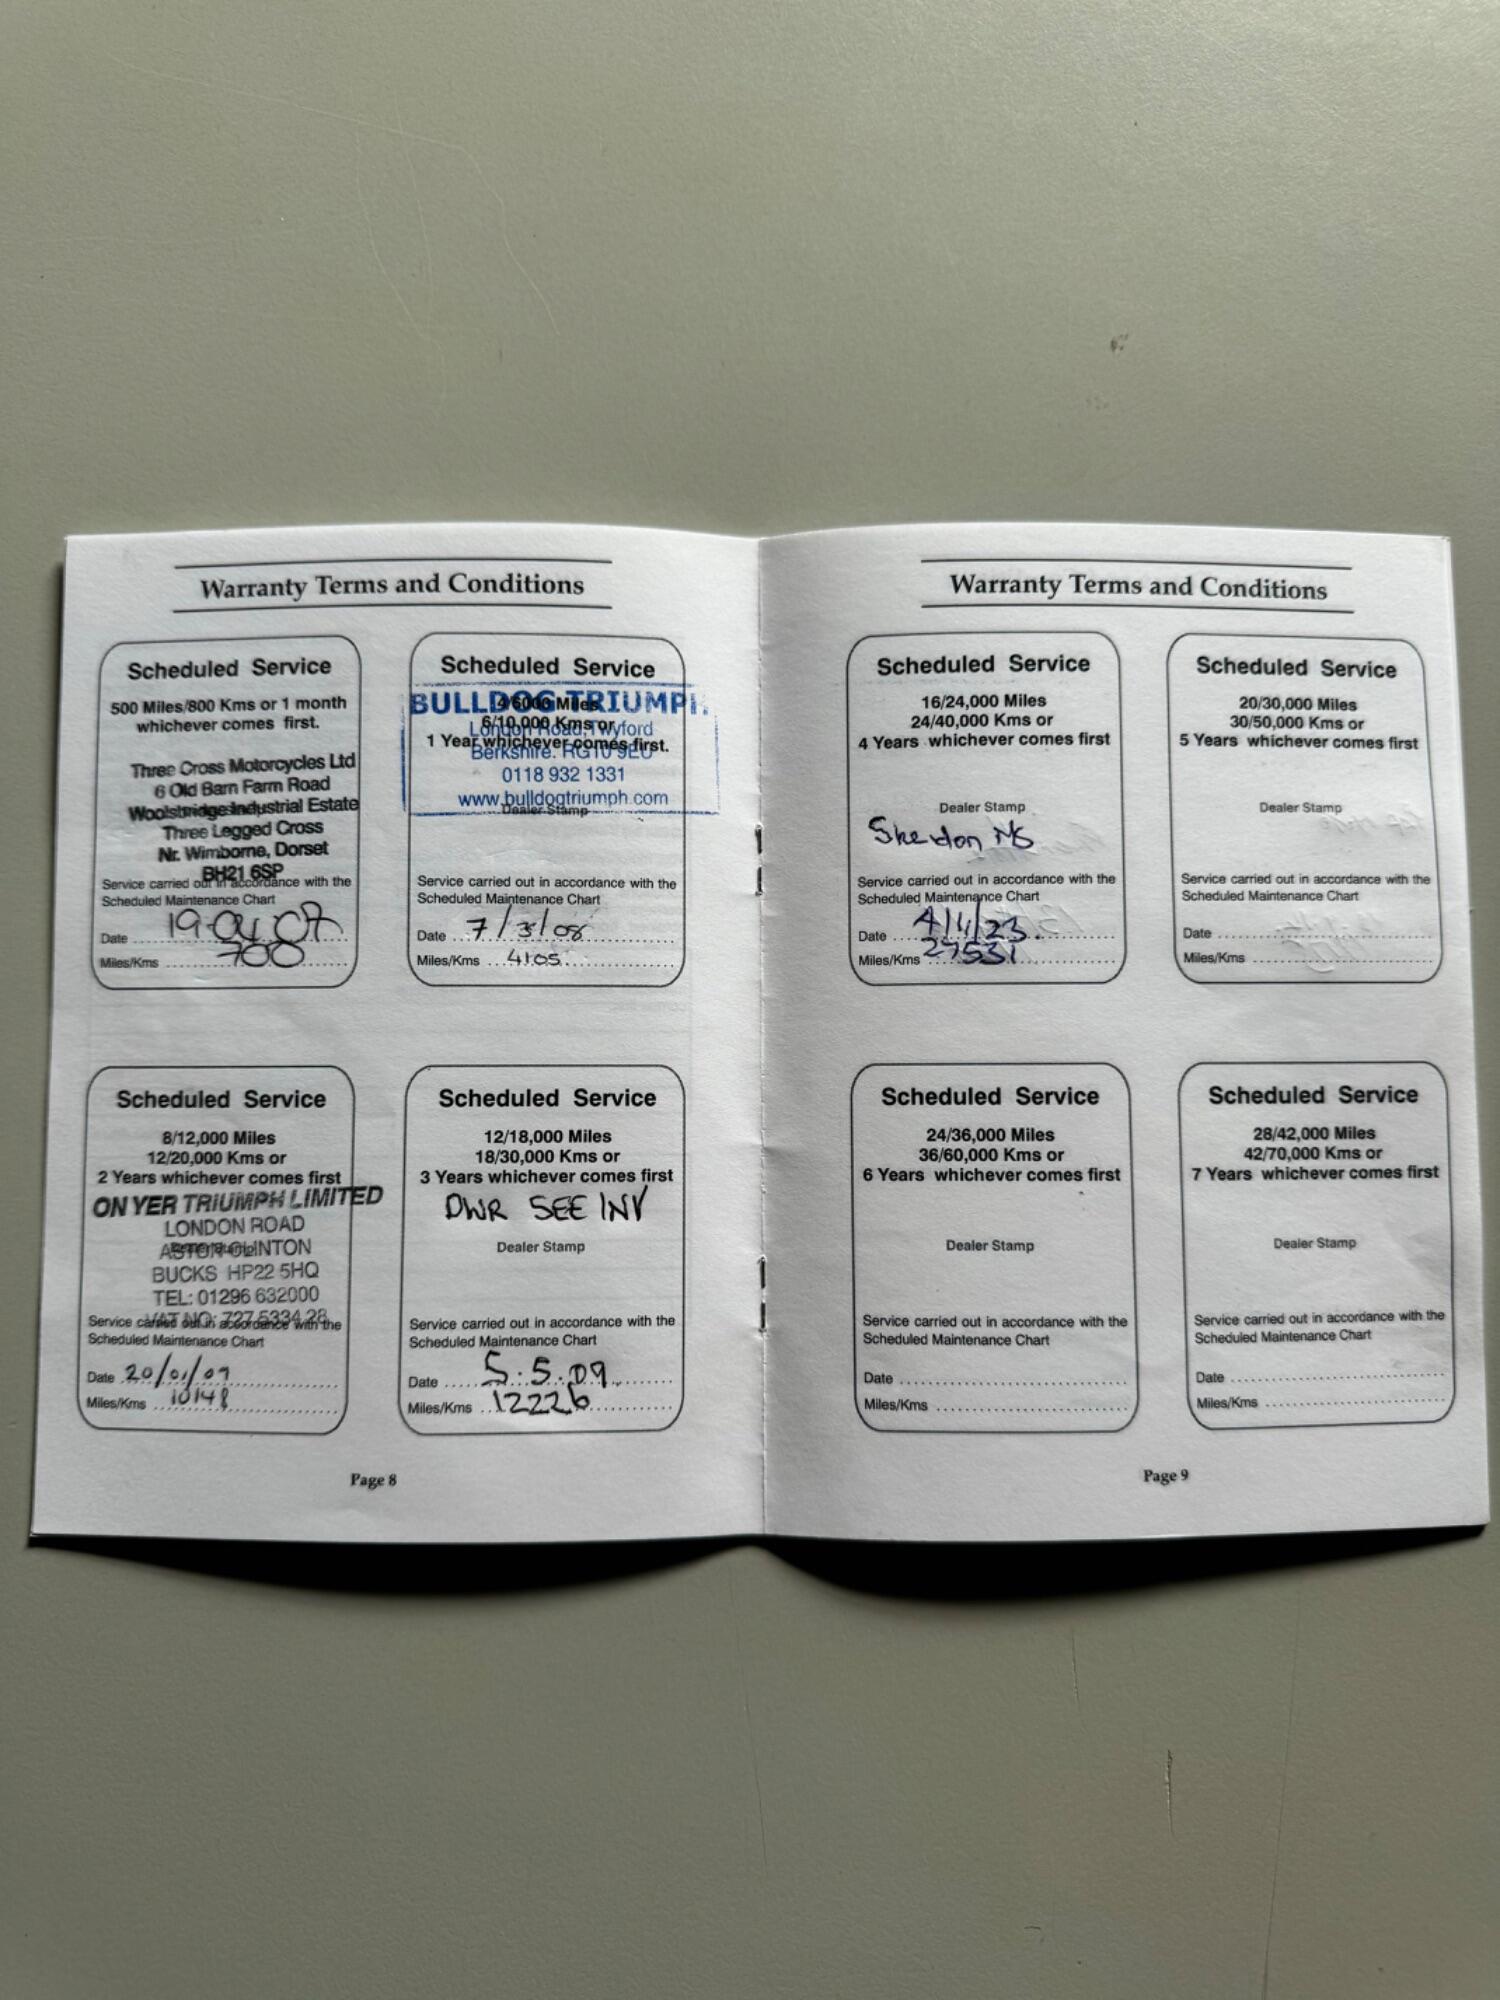 Warranty Terms and Conditions
Scheduled Service
500 Miles/800 Kms or 1 month
whichever comes first.
Three Cross Motorcycles Ltd
6 Old Barn Farm Road
Woolsbridge Industrial Estate
Three Legged Cross
Nr. Wimborne, Dorset
BH21 6SP
Service carried out in accordance with the
Scheduled Maintenance Chart
Date 19.04.07
Miles/Kms 700
Scheduled Service
BULLDOG TRIUMPH
4/6000 Miles
London Road, Twyford
6/10,000 Kms or
1 Year whichever comes first.
Berkshire. RG10 9EU
0118 932 1331
www.bulldogtriumph.com
Dealer Stamp
Service carried out in accordance with the
Scheduled Maintenance Chart
Date 7/3/08
Miles/Kms 4105
Scheduled Service
8/12,000 Miles
12/20,000 Kms or
2 Years whichever comes first
ON YER TRIUMPH LIMITED
LONDON ROAD
ASTON CLINTON
BUCKS HP22 5HQ
TEL: 01296 632000
VAT NO: 727 5334 28
Service carried out in accordance with the
Scheduled Maintenance Chart
Date 20/01/09
Miles/Kms 10148
Scheduled Service
12/18,000 Miles
18/30,000 Kms or
3 Years whichever comes first
DWR SEE INV
Dealer Stamp
Service carried out in accordance with the
Scheduled Maintenance Chart
Date 5.5.09
Miles/Kms 12226
Page 8
Warranty Terms and Conditions
Scheduled Service
16/24,000 Miles
24/40,000 Kms or
4 Years whichever comes first
Dealer Stamp
Service carried out in accordance with the
Scheduled Maintenance Chart
Date 4/11/23.
Miles/Kms 27531
Scheduled Service
20/30,000 Miles
30/50,000 Kms or
5 Years whichever comes first
Dealer Stamp
Service carried out in accordance with the
Scheduled Maintenance Chart
Date
Miles/Kms
Scheduled Service
24/36,000 Miles
36/60,000 Kms or
6 Years whichever comes first
Dealer Stamp
Service carried out in accordance with the
Scheduled Maintenance Chart
Date
Miles/Kms
Scheduled Service
28/42,000 Miles
42/70,000 Kms or
7 Years whichever comes first
Dealer Stamp
Service carried out in accordance with the
Scheduled Maintenance Chart
Date
Miles/Kms
Page 9